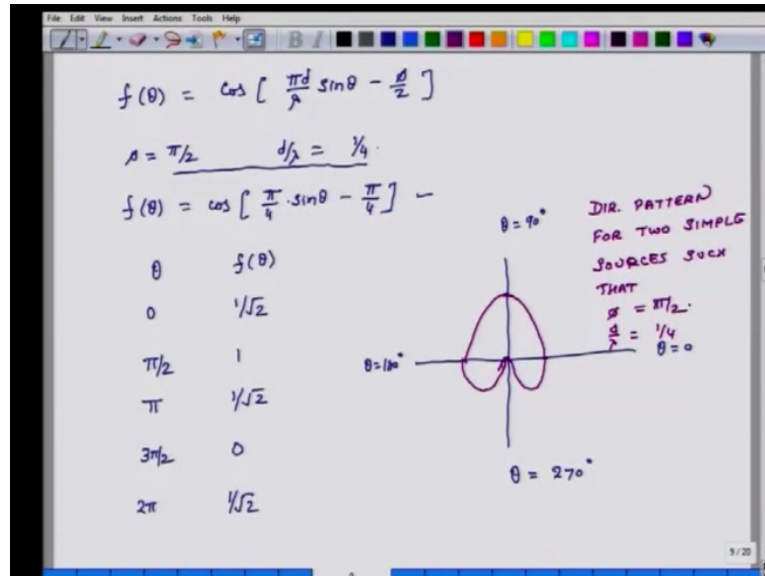 File Edit View Insert Actions Tools Help
f(θ) = cos [ πd/λ sinθ - ø/2 ]
ø = π/2 d/λ = 1/4.
f(θ) = cos [ π/4 · sinθ - π/4 ] -
θ f(θ)
0 1/√2
π/2 1
π 1/√2
3π/2 0
2π 1/√2
θ = 90°
θ = 180°
θ = 0
θ = 270°
DIR. PATTERN
FOR TWO SIMPLE
SOURCES SUCH
THAT
ø = π/2.
d/λ = 1/4
9 / 20